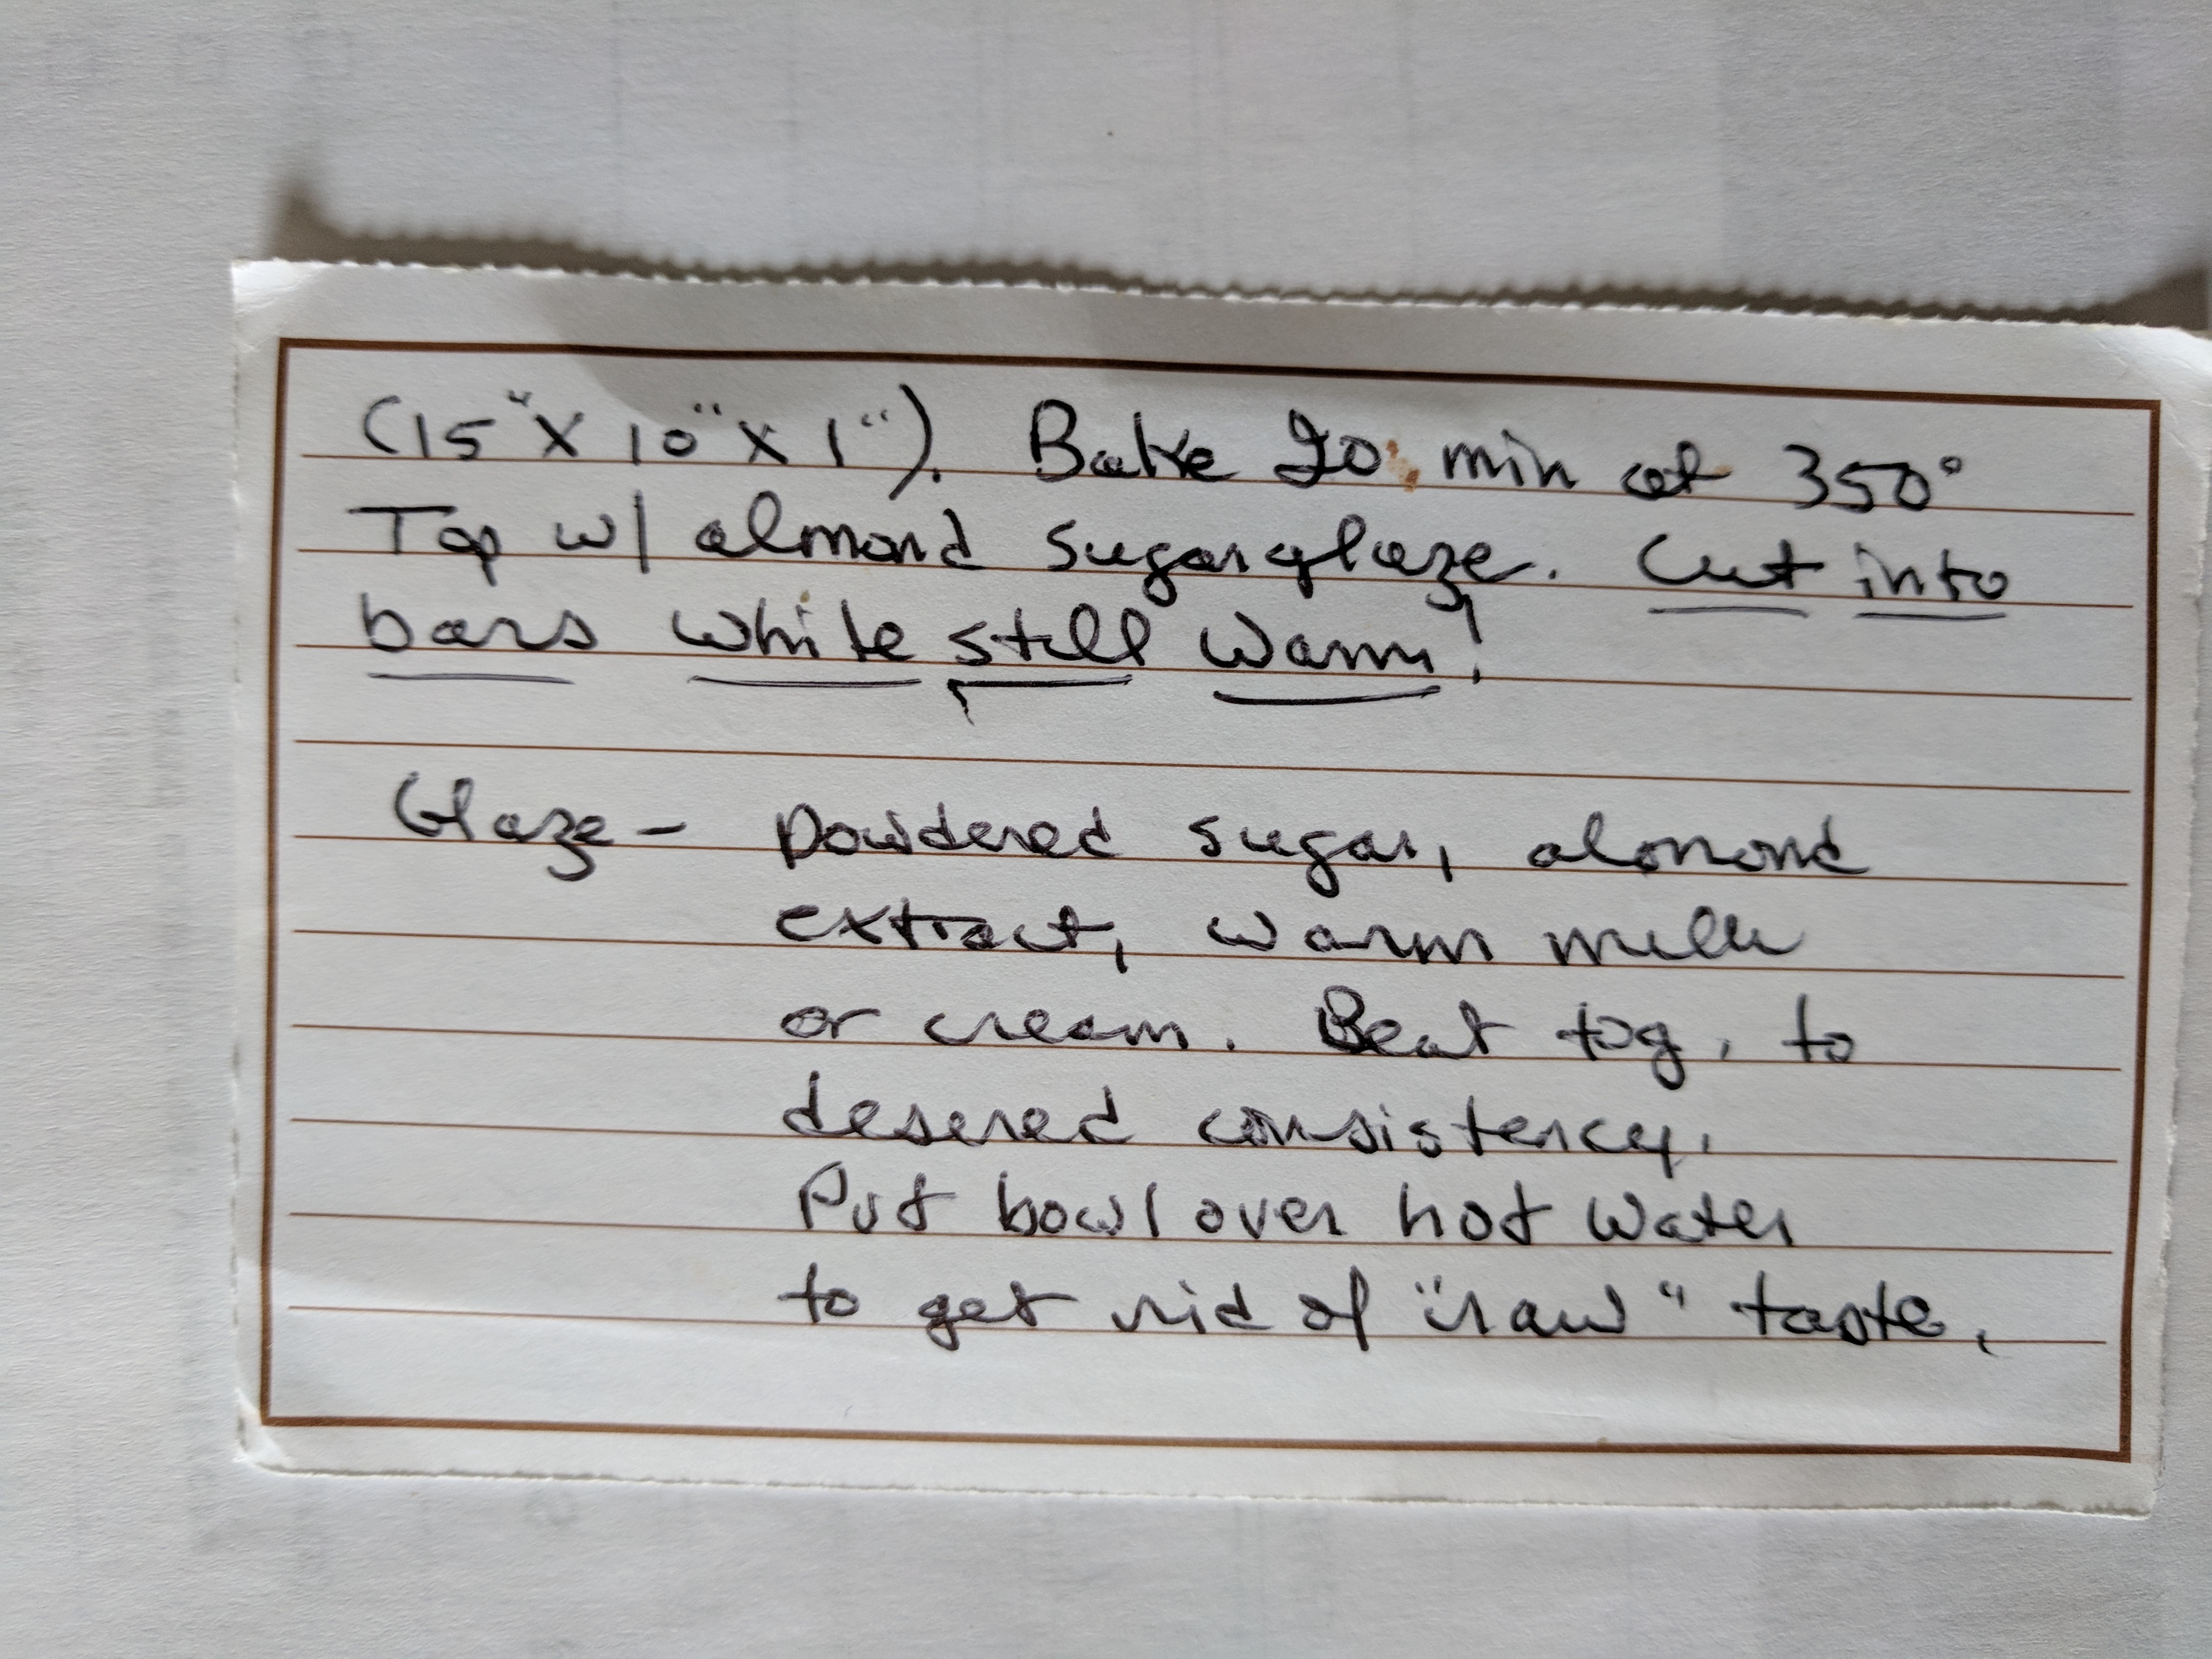 (15" X 10" X 1"). Bake 20 min at 350°
Top w/ almond sugar glaze. Cut into
bars while still warm!
Glaze - Powdered sugar, almond
extract, warm milk
or cream. Beat tog. to
desired consistency.
Put bowl over hot water
to get rid of "raw" taste.